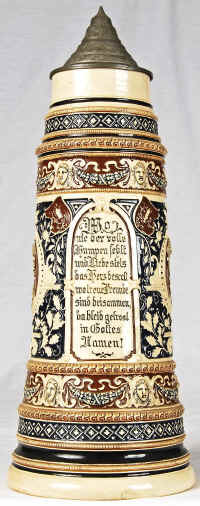 Wo
nie der volle
Humpen fehlt
und Liebe stets
das Herz beseelt
wo treue Freunde
sind beisammen,
da bleib getrost
in Gottes
Namen!